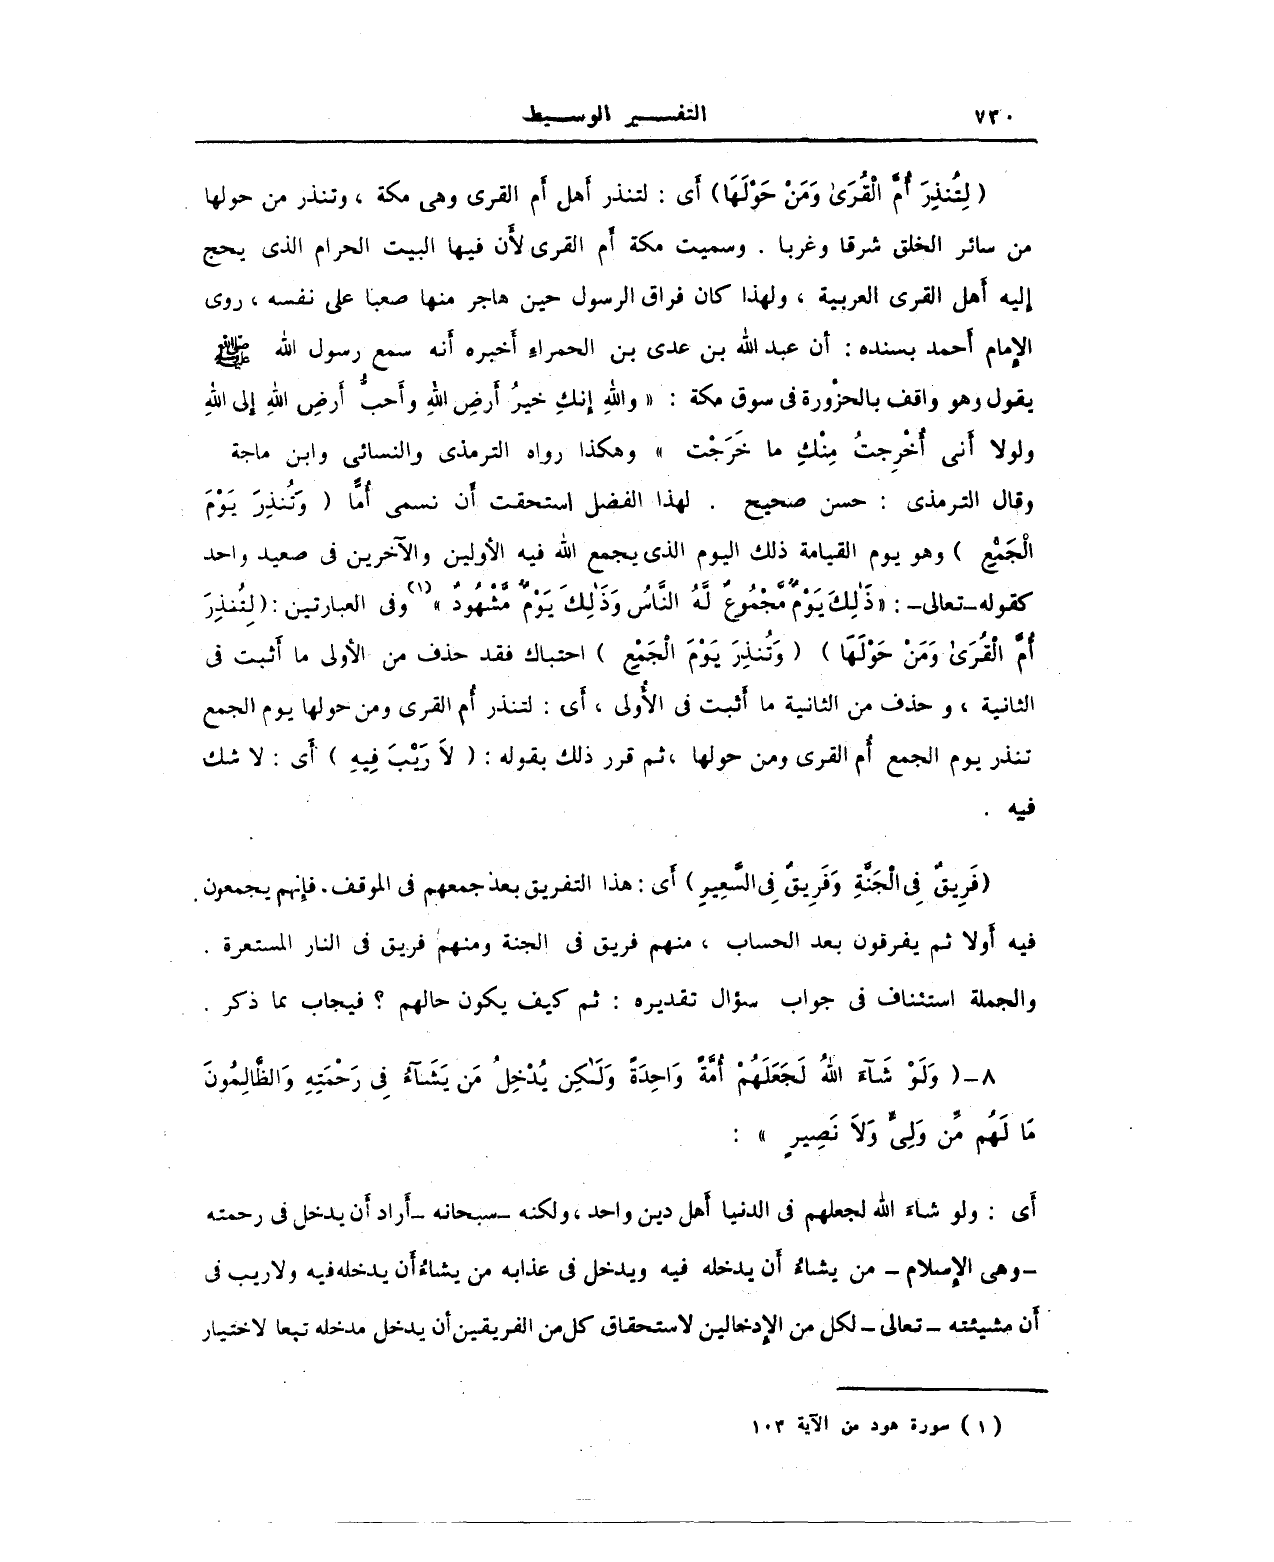 ٧٣٠ التفسير الوسيط
( لِتُنذِرَ أُمَّ الْقُرَىٰ وَمَنْ حَوْلَهَا ) أَى : لتنذر أَهل أُم القرى وهى مكة ، وتنذر من حولها
من سائر الخلق شرقا وغربا . وسميت مكة أُم القرى لأَن فيها البيت الحرام الذى يحج
إليه أَهل القرى العربية ، ولهذا كان فراق الرسول حين هاجر منها صعبا على نفسه ، روى
الإمام أَحمد بسنده : أن عبد الله بن عدى بن الحمراء أَخبره أَنه سمع رسول الله ﷺ
يقول وهو واقف بالحزْورة فى سوق مكة : « واللهِ إنكِ خيرُ أَرضِ اللهِ وأَحبُّ أَرضِ اللهِ إلى اللهِ
ولولا أَنى أُخْرِجتُ مِنْكِ ما خَرَجْت » وهكذا رواه الترمذى والنسائى وابن ماجة
وقال الترمذى : حسن صحيح . لهذا الفضل استحقت أَن نسمى أُمًّا ( وَتُنذِرَ يَوْمَ
الْجَمْعِ ) وهو يوم القيامة ذلك اليوم الذى يجمع الله فيه الأولين والآخرين فى صعيد واحد
كقوله ـ تعالى ـ : « ذَٰلِكَ يَوْمٌ مَّجْمُوعٌ لَّهُ النَّاسُ وَذَٰلِكَ يَوْمٌ مَّشْهُودٌ » (١) وفى العبارتين : ( لِتُنذِرَ
أُمَّ الْقُرَىٰ وَمَنْ حَوْلَهَا ) ( وَتُنذِرَ يَوْمَ الْجَمْعِ ) احتباك فقد حذف من الأولى ما أَثبت فى
الثانية ، و حذف من الثانية ما أَثبت فى الأُولى ، أَى : لتنذر أُم القرى ومن حولها يوم الجمع
تنذر يوم الجمع أُم القرى ومن حولها ، ثم قرر ذلك بقوله : ( لاَ رَيْبَ فِيهِ ) أَى : لا شك
فيه .
( فَرِيقٌ فِى الْجَنَّةِ وَفَرِيقٌ فِى السَّعِيرِ ) أَى : هذا التفريق بعد جمعهم فى الموقف . فإنهم يجمعون
فيه أَولا ثم يفرقون بعد الحساب ، منهم فريق فى الجنة ومنهم فريق فى النار المستعرة .
والجملة استئناف فى جواب سؤال تقديره : ثم كيف يكون حالهم ؟ فيجاب بما ذكر .
٨ ـ ( وَلَوْ شَآءَ اللهُ لَجَعَلَهُمْ أُمَّةً وَاحِدَةً وَلَٰكِن يُدْخِلُ مَن يَشَآءُ فِى رَحْمَتِهِ وَالظَّالِمُونَ
مَا لَهُم مِّن وَلِىٍّ وَلاَ نَصِيرٍ » :
أَى : ولو شاء الله لجعلهم فى الدنيا أَهل دين واحد ، ولكنه ـ سبحانه ـ أَراد أَن يدخل فى رحمته
ـ وهى الإسلام ـ من يشاءُ أَن يدخله فيه ويدخل فى عذابه من يشاءُ أَن يدخله فيه ولا ريب فى
أَن مشيئته ـ تعالى ـ لكل من الإدخالين لاستحقاق كل من الفريقين أن يدخل مدخله تبعا لاختيار
( ١ ) سورة هود من الآية ١٠٣